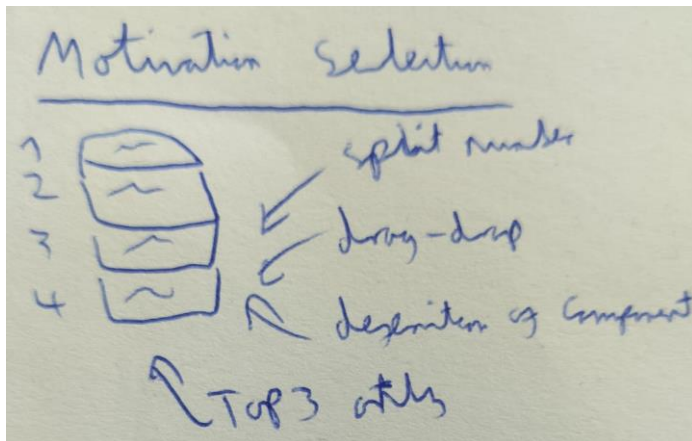 Motivation Selection
1
split number
2
3
drag-drop
4
definition of Component
Top 3